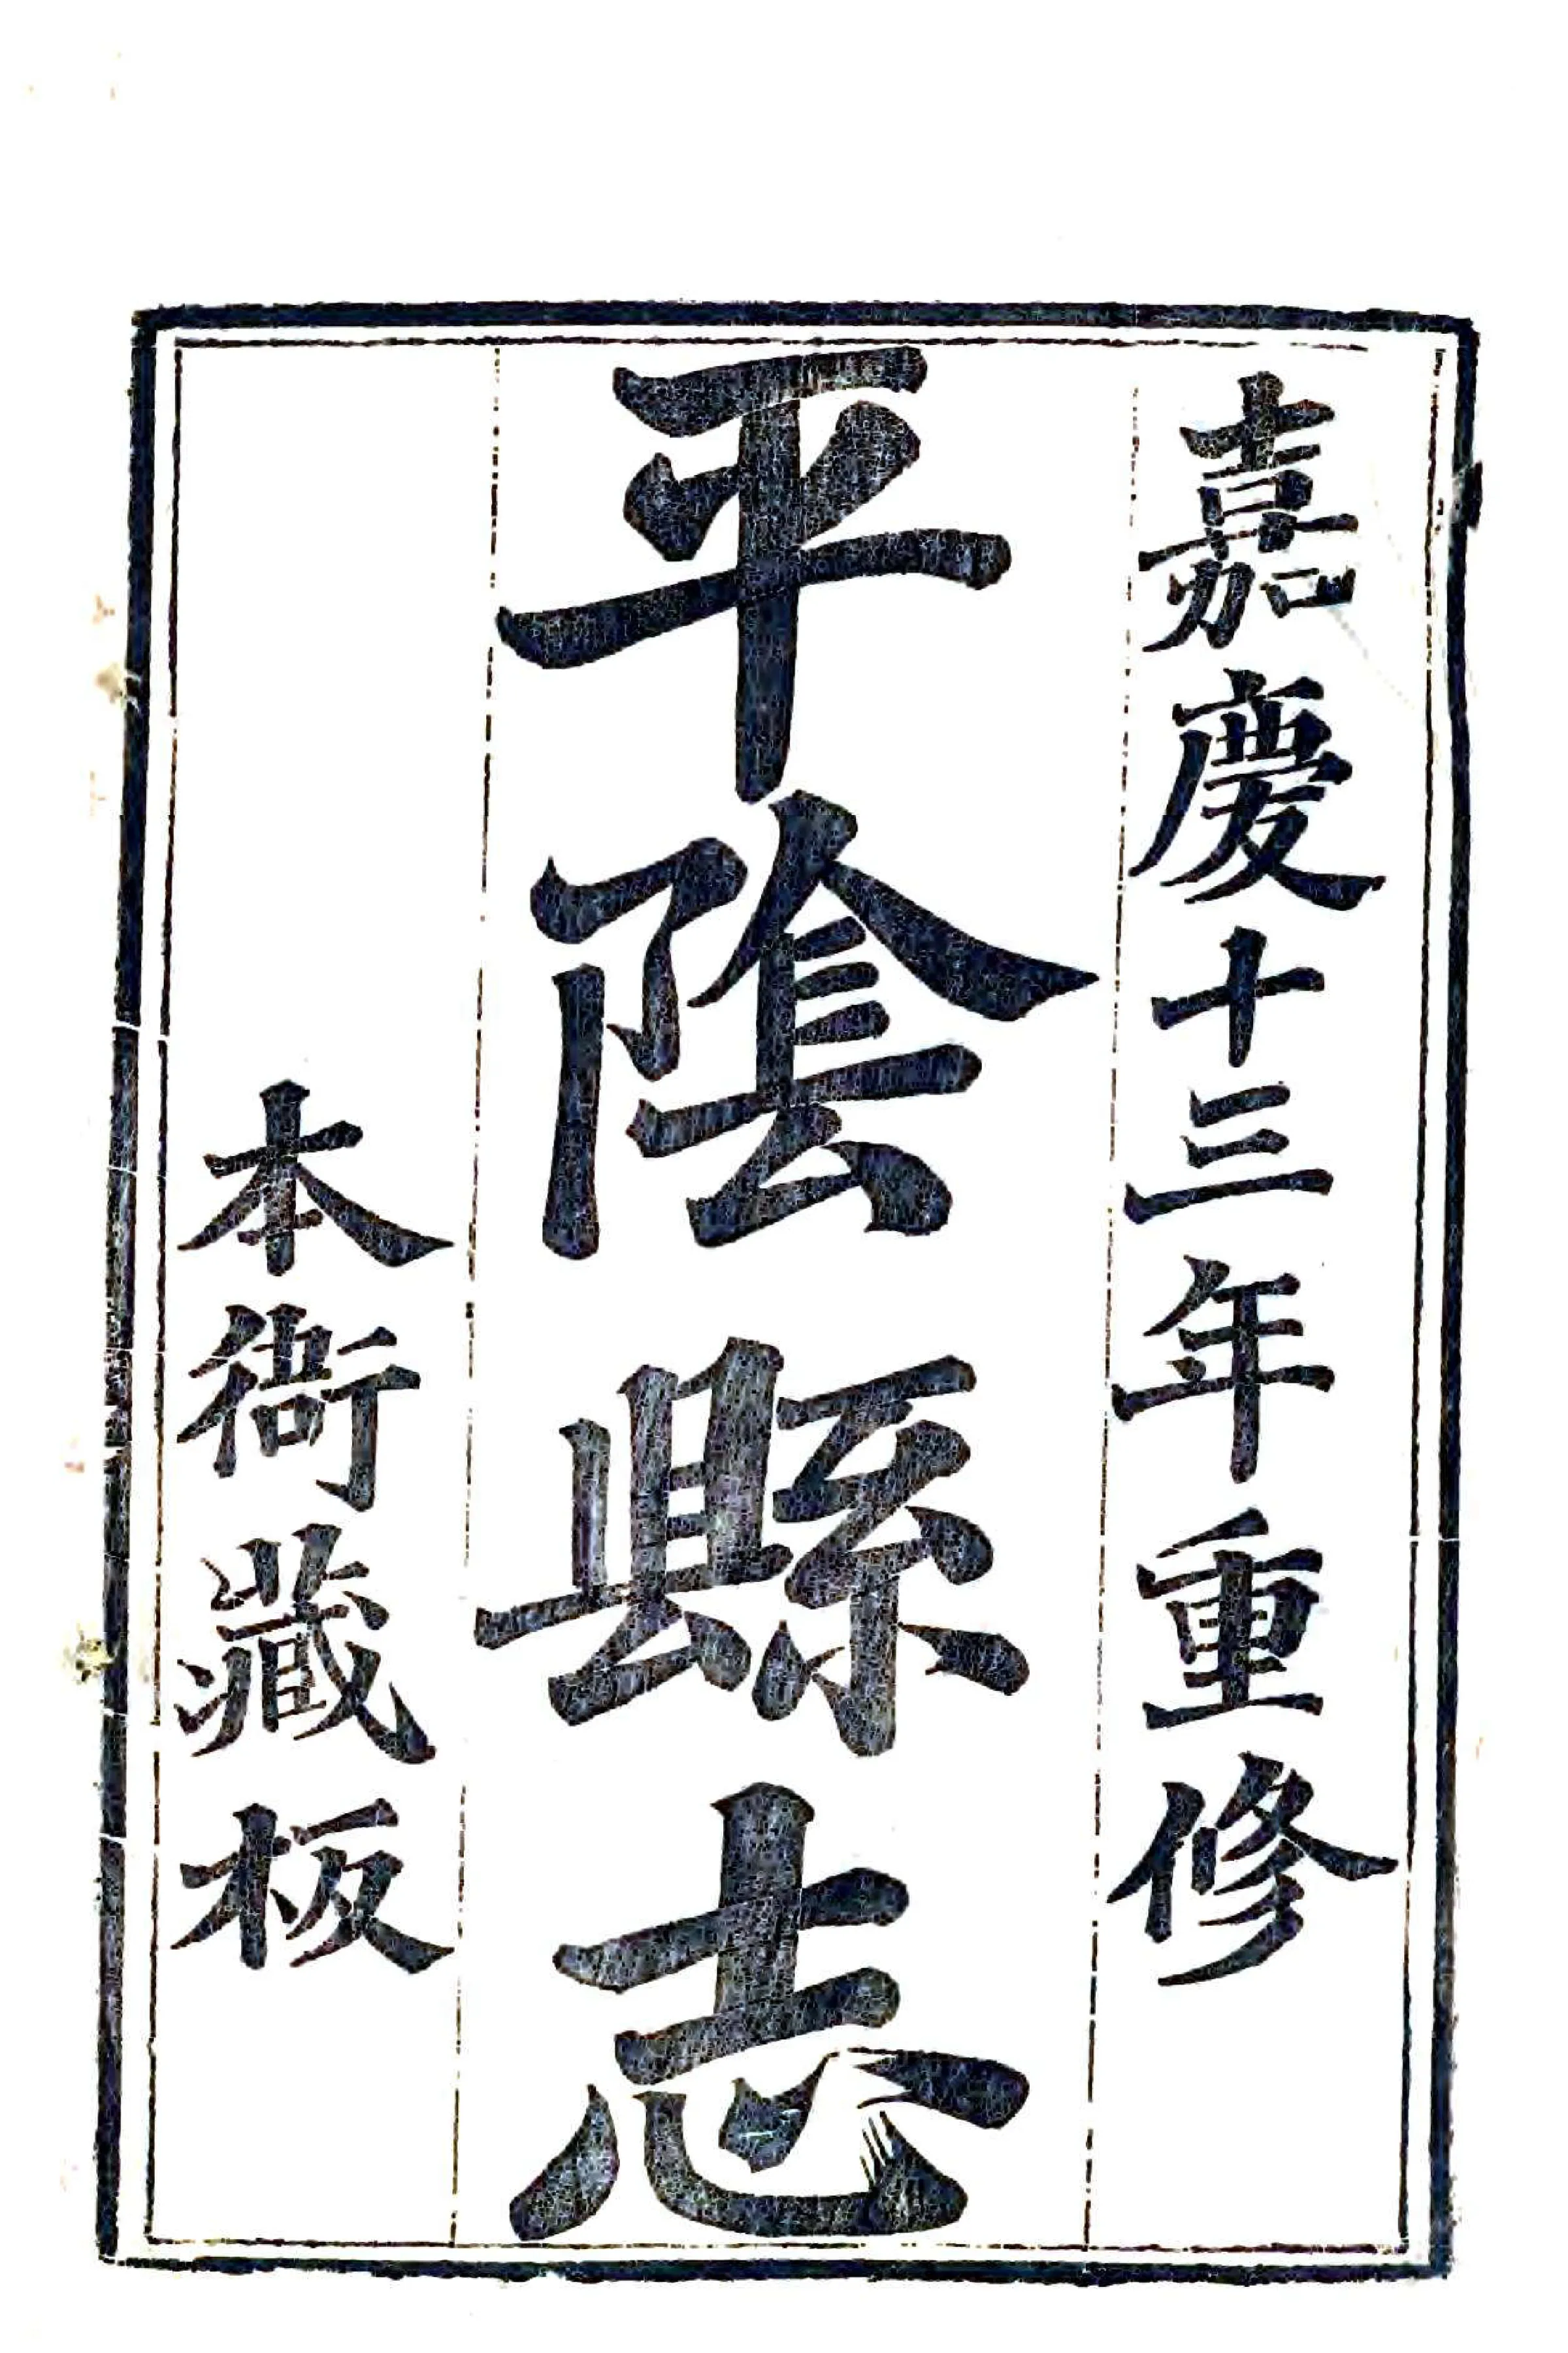 嘉慶十三年重修
平隂縣志
本衙藏板